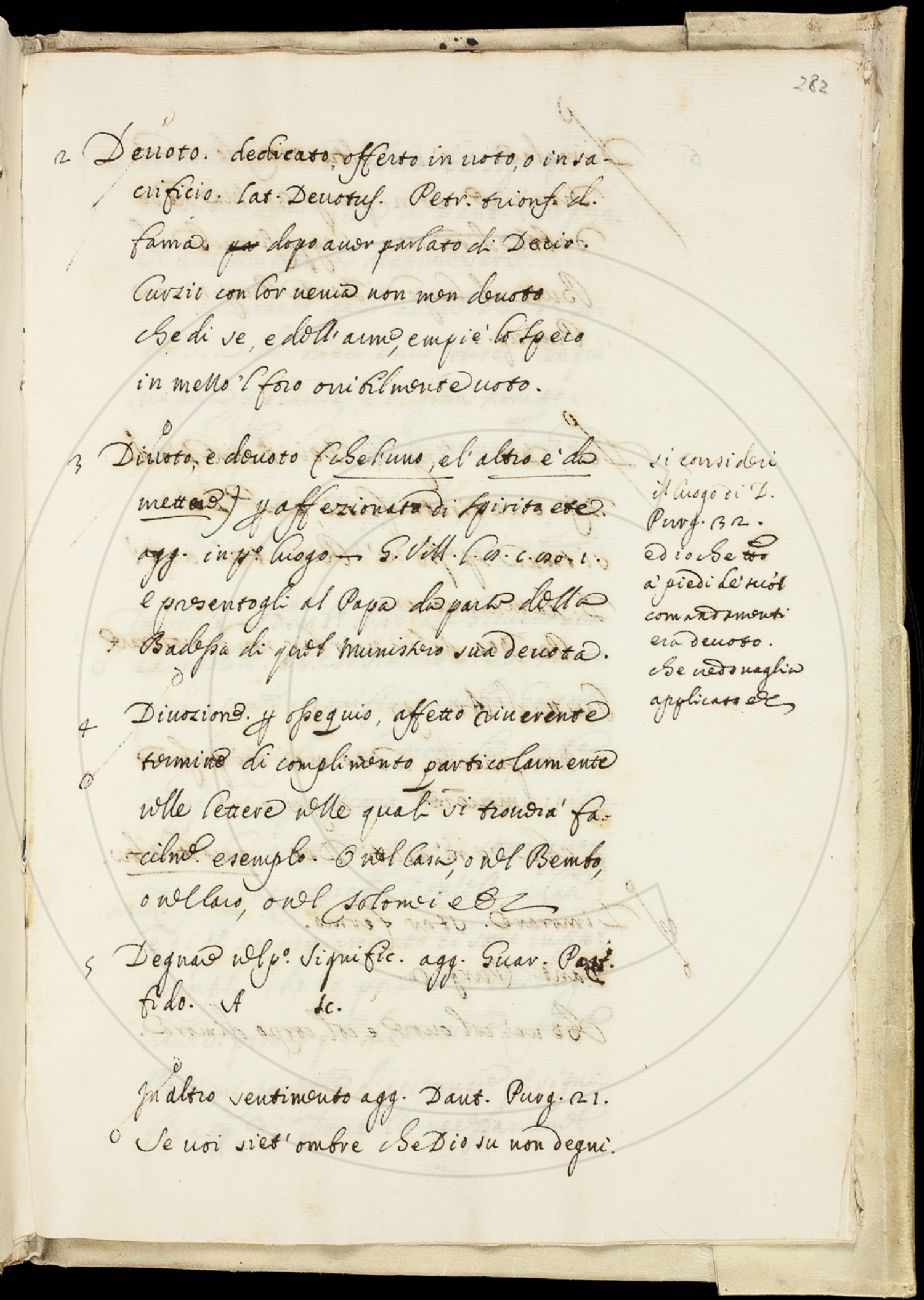 282
2 Deuoto. dedicato, offerto in uoto, o in sa-
crificio. lat. Deuotus. Petr. trionf. d.
fama. dopo auer parlato di Decio.
Curzio con lor uenia non men deuoto
che di se, e dell'arme, empiè lo speco
in mezzo 'l foro orribilmente uoto.
3 Diuoto, e deuoto (che l'uno, e l'altro è da
mettere) p affezionato di spirito etc.
agg. in p.º luogo — G. Vill. l. c. 1.
e presentogli al Papa da parte della
Badessa di quel munistero sua deuota.
si consideri
il luogo di D.
Purg. 32.
ed io che tto
a' piedi de' suoi
comandamenti
era deuoto.
che credo uaglia
applicato etc
4 Diuozione. p ossequio, affetto riuerente
termine di complimento particolarmente
nelle lettere nelle quali si trouerà fa-
cilme. esempio. O nel Casa, o nel Bembo,
o nel Caro, o nel Tolomei etc
5 Degnare nel p.º signific. agg. Guar. Past.
fido. A sc.
In altro sentimento agg. Dant. Purg. 21.
Se uoi siet' ombre che Dio su non degni.